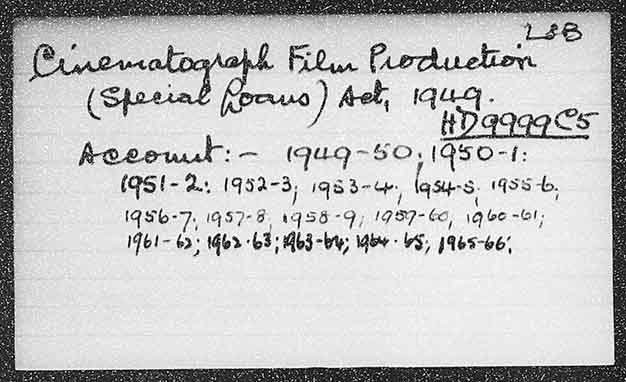 LSB
Cinematograph Film Production
(Special Loans) Act, 1949.
HD9999C5
Account:- 1949-50; 1950-1:
1951-2: 1952-3; 1953-4; 1954-5; 1955-6;
1956-7; 1957-8; 1958-9; 1959-60; 1960-61;
1961-62; 1962-63; 1963-64; 1964-65; 1965-66;